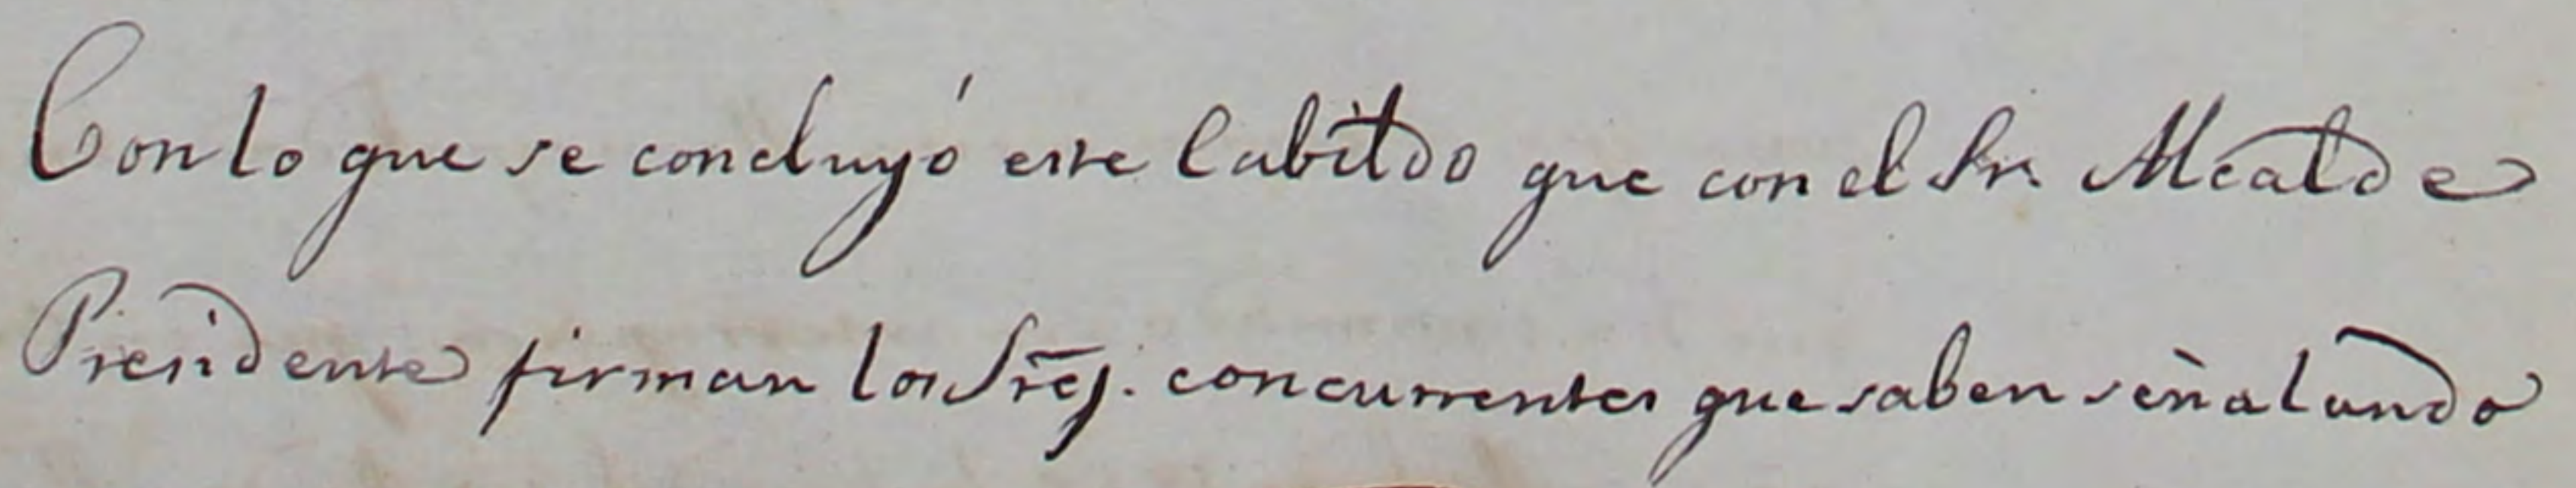 Con lo que se concluyó este Cabildo que con el Sr. Alcalde
Presidente firman los Sres. concurrentes que saben señalando